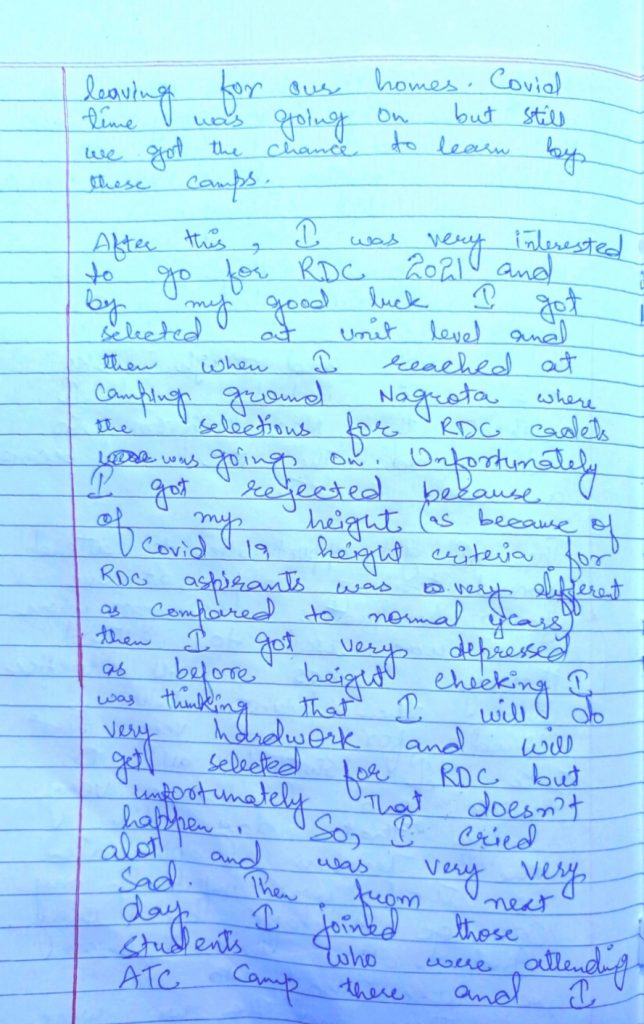 leaving for our homes. Covid
time was going on but still
we got the chance to learn by
these camps.
After this, I was very interested
to go for RDC 2021 and
by my good luck I got
selected at unit level and
then when I reached at
Camping ground Nagrota where
the selections for RDC cadets
was going on. Unfortunately
I got rejected because
of my height (as because of
Covid 19 height criteria for
RDC aspirants was very different
as compared to normal years)
then I got very depressed
as before height checking I
was thinking that I will do
very hardwork and will
get selected for RDC but
unfortunately that doesn't
happen. So, I cried
alot and was very very
sad. Then from next
day I joined those
students who were attending
ATC Camp there and I